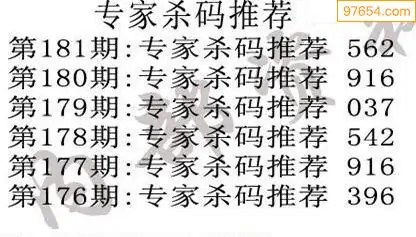 97654.com
专家杀码推荐
第181期:专家杀码推荐 562
第180期:专家杀码推荐 916
第179期:专家杀码推荐 037
第178期:专家杀码推荐 542
第177期:专家杀码推荐 916
第176期:专家杀码推荐 396